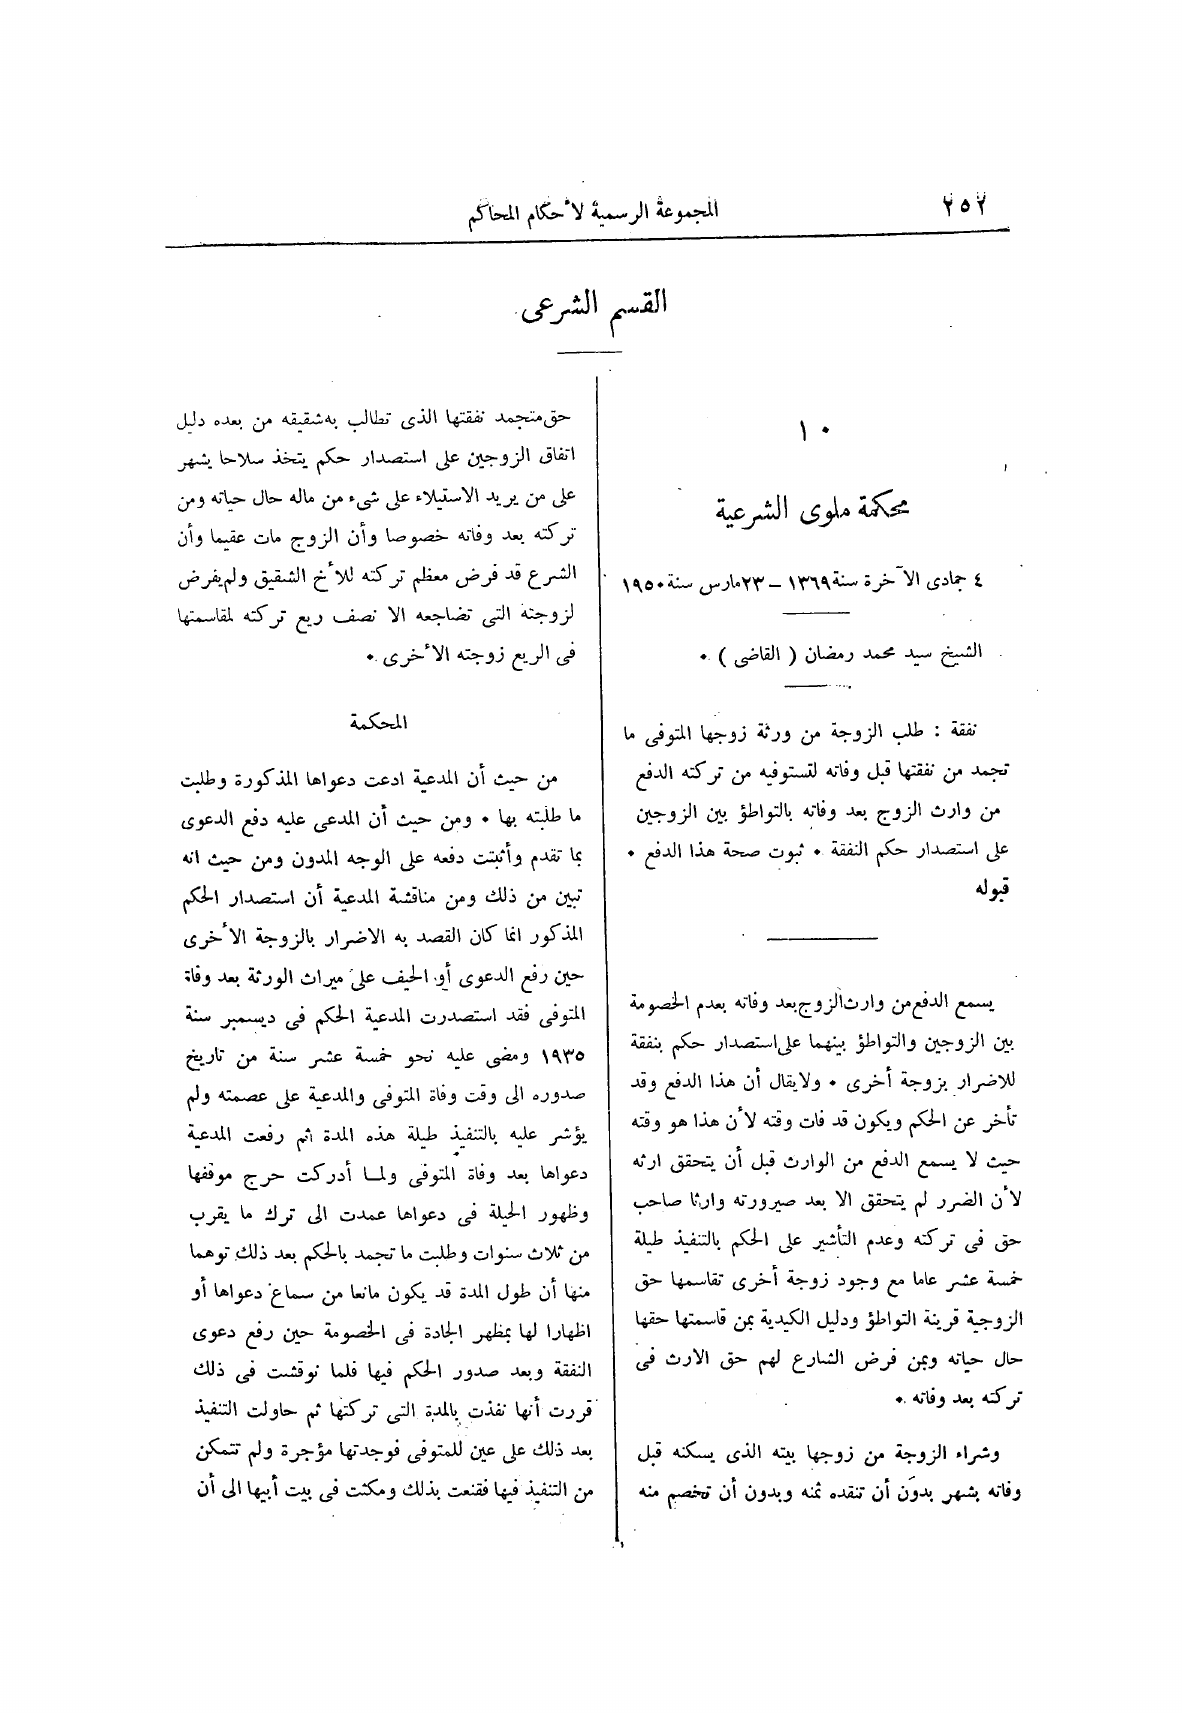 ٢٥٢
المجموعة الرسمية لأحكام المحاكم
القسم الشرعى
١٠
محكمة ملوى الشرعية
٤ جمادى الآخرة سنة ١٣٦٩ – ٢٣ مارس سنة ١٩٥٠
الشيخ سيد محمد رمضان ( القاضى ) .
نفقة : طلب الزوجة من ورثة زوجها المتوفى ما
تجمد من نفقتها قبل وفاته لتستوفيه من تركته الدفع
من وارث الزوج بعد وفاته بالتواطؤ بين الزوجين
على استصدار حكم النفقة . ثبوت صحة هذا الدفع .
قبوله
يسمع الدفع من وارث الزوج بعد وفاته بعدم الخصومة
بين الزوجين والتواطؤ بينهما على استصدار حكم بنفقة
للاضرار بزوجة أخرى . ولا يقال أن هذا الدفع وقد
تأخر عن الحكم ويكون قد فات وقته لأن هذا هو وقته
حيث لا يسمع الدفع من الوارث قبل أن يتحقق ارثه
لأن الضرر لم يتحقق الا بعد صيرورته وارثا صاحب
حق فى تركته وعدم التأشير على الحكم بالتنفيذ طيلة
خمسة عشر عاما مع وجود زوجة أخرى تقاسمها حق
الزوجية قرينة التواطؤ ودليل الكيدية بمن قاسمتها حقها
حال حياته وبمن فرض الشارع لهم حق الارث فى
تركته بعد وفاته .
وشراء الزوجة من زوجها بيته الذى يسكنه قبل
وفاته بشهر بدون أن تنقده ثمنه وبدون أن تخصم منه
حق متجمد نفقتها الذى تطالب به شقيقه من بعده دليل
اتفاق الزوجين على استصدار حكم يتخذ سلاحا يشهر
على من يريد الاستيلاء على شىء من ماله حال حياته ومن
تركته بعد وفاته خصوصا وأن الزوج مات عقيما وأن
الشرع قد فرض معظم تركته للأخ الشقيق ولم يفرض
لزوجته التى تضاجعه الا نصف ربع تركته لمقاسمتها
فى الربع زوجته الأخرى .
المحكمة
من حيث أن المدعية ادعت دعواها المذكورة وطلبت
ما طلبته بها . ومن حيث أن المدعى عليه دفع الدعوى
بما تقدم وأثبتت دفعه على الوجه المدون ومن حيث انه
تبين من ذلك ومن مناقشة المدعية أن استصدار الحكم
المذكور انما كان القصد به الاضرار بالزوجة الأخرى
حين رفع الدعوى أو الحيف على ميراث الورثة بعد وفاة
المتوفى فقد استصدرت المدعية الحكم فى ديسمبر سنة
١٩٣٥ ومضى عليه نحو خمسة عشر سنة من تاريخ
صدوره الى وقت وفاة المتوفى والمدعية على عصمته ولم
يؤشر عليه بالتنفيذ طيلة هذه المدة ثم رفعت المدعية
دعواها بعد وفاة المتوفى ولمـا أدركت حرج موقفها
وظهور الحيلة فى دعواها عمدت الى ترك ما يقرب
من ثلاث سنوات وطلبت ما تجمد بالحكم بعد ذلك توهما
منها أن طول المدة قد يكون مانعا من سماع دعواها أو
اظهارا لها بمظهر الجادة فى الخصومة حين رفع دعوى
النفقة وبعد صدور الحكم فيها فلما نوقشت فى ذلك
قررت أنها نفذت بالمدة التى تركتها ثم حاولت التنفيذ
بعد ذلك على عين للمتوفى فوجدتها مؤجرة ولم تتمكن
من التنفيذ فيها فقنعت بذلك ومكثت فى بيت أبيها الى أن